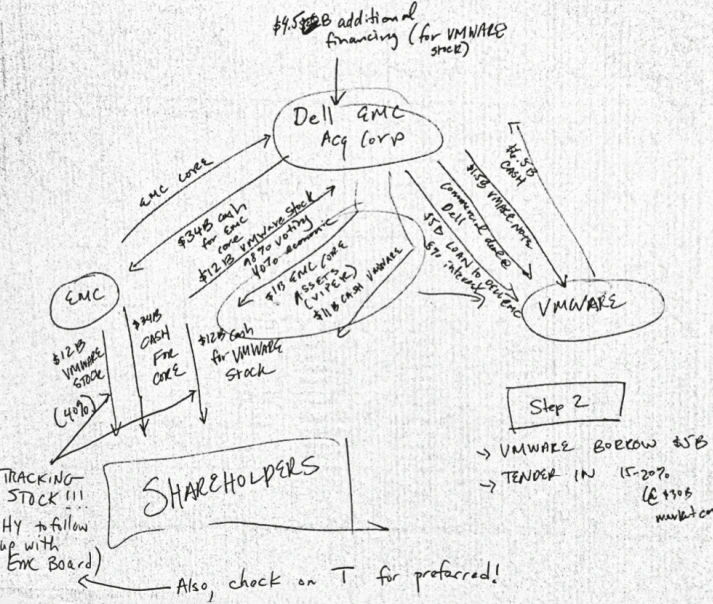 $9.5B additional
financing (for VMWARE
stock)
Dell EMC
Acq Corp
EMC CORE
$34B cash
for EMC
core
$12B VMWARE STOCK
98% voting
40% economic
$1B EMC CORE
ASSETS
(VIPER)
$11B CASH VMWARE
$5B LOAN to
5% interest
commercial
Dell
$1.5B VMARE NOTE
$6.5B
CASH
EMC
VMWARE
$12B
VMWARE
STOCK
(40%)
$34B
CASH
FOR
CORE
$12B Cash
for VMWARE
STOCK
SHAREHOLDERS
Step 2
→ VMWARE BORROW $5B
→ TENDER IN 15-20%
(@ $30B
market
TRACKING
STOCK!!!
HY to follow
up with
EMC Board)
Also, check on T for preferred!